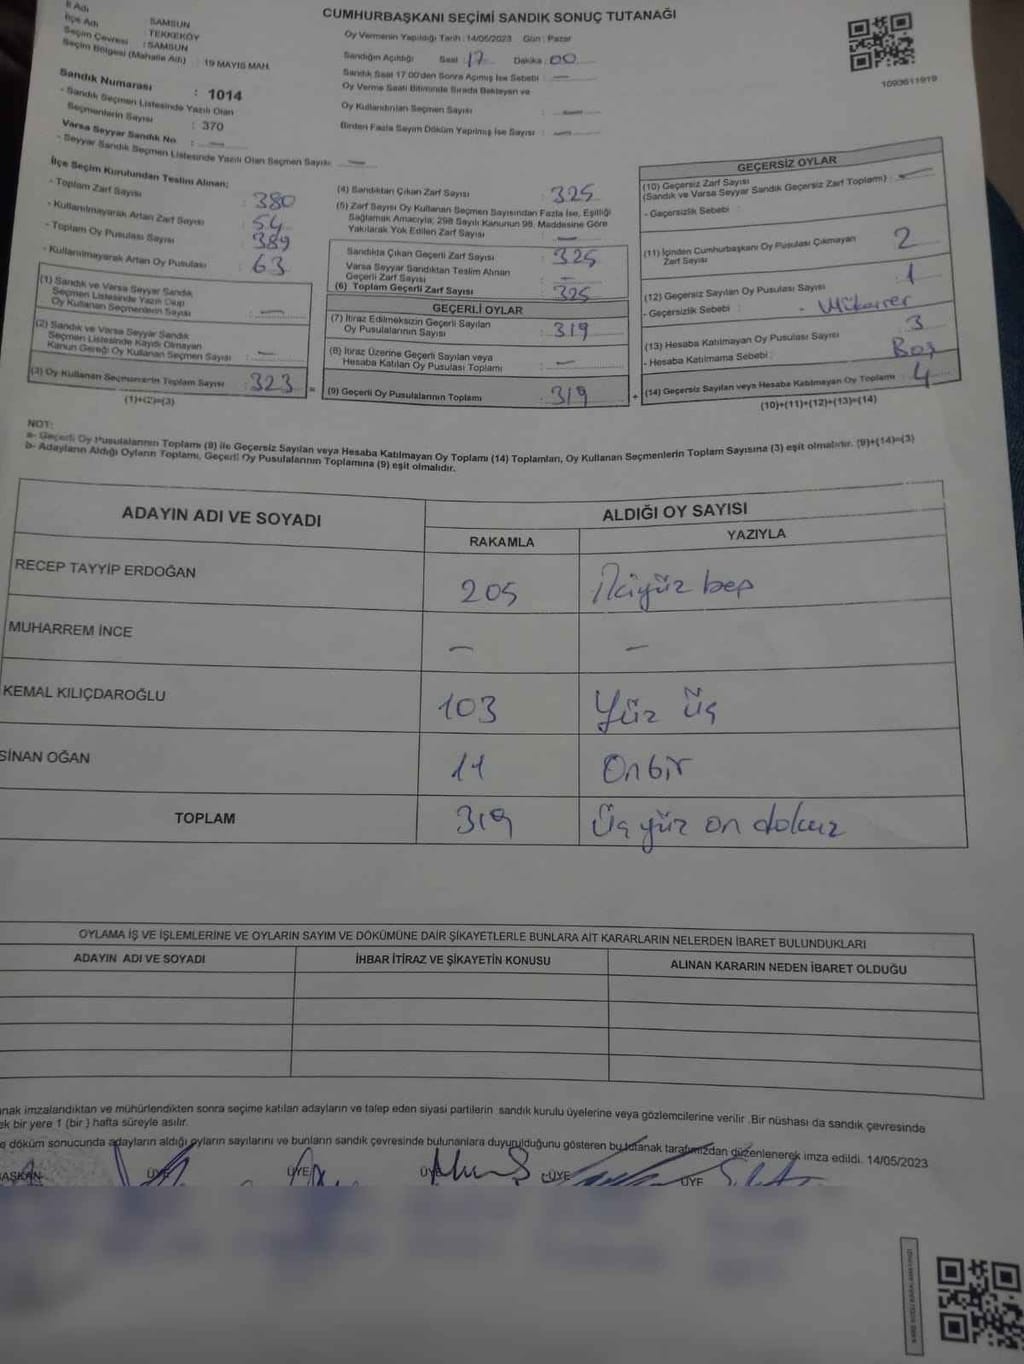 CUMHURBAŞKANI SEÇİMİ SANDIK SONUÇ TUTANAĞI
İl Adı
SAMSUN
İlçe Adı
: TEKKEKÖY
Seçim Çevresi
: SAMSUN
Seçim Bölgesi (Mahalle Adı)
: 19 MAYIS MAH.
Sandık Numarası
: 1014
- Sandık Seçmen Listesinde Yazılı Olan
Seçmenlerin Sayısı
: 370
Varsa Seyyar Sandık No
: —
- Seyyar Sandık Seçmen Listesinde Yazılı Olan Seçmen Sayısı : —
Oy Vermenin Yapıldığı Tarih : 14/05/2023 Gün : Pazar
Sandığın Açıldığı Saat : 17 Dakika : 00
Sandık Saat 17.00'den Sonra Açmış İse Sebebi : —
Oy Verme Saati Bitiminde Sırada Bekleyen ve
Oy Kullandırılan Seçmen Sayısı : —
Birden Fazla Sayım Döküm Yapılmış İse Sayısı : —
1093611919
İlçe Seçim Kurulundan Teslim Alınan;
- Toplam Zarf Sayısı : 380
- Kullanılmayarak Artan Zarf Sayısı : 54
- Toplam Oy Pusulası Sayısı : 389
- Kullanılmayarak Artan Oy Pusulası : 63
(1) Sandık ve Varsa Seyyar Sandık
Seçmen Listesinde Yazılı Olup
Oy Kullanan Seçmenlerin Sayısı : —
(2) Sandık ve Varsa Seyyar Sandık
Seçmen Listesinde Kaydı Olmayan
Kanun Gereği Oy Kullanan Seçmen Sayısı : —
(3) Oy Kullanan Seçmenlerin Toplam Sayısı : 323 =
(1)+(2)=(3)
(4) Sandıktan Çıkan Zarf Sayısı : 325
(5) Zarf Sayısı Oy Kullanan Seçmen Sayısından Fazla İse, Eşitliği
Sağlamak Amacıyla; 298 Sayılı Kanunun 98. Maddesine Göre
Yakılarak Yok Edilen Zarf Sayısı : —
Sandıkta Çıkan Geçerli Zarf Sayısı : 325
Varsa Seyyar Sandıktan Teslim Alınan
Geçerli Zarf Sayısı : —
(6) Toplam Geçerli Zarf Sayısı : 325
GEÇERLİ OYLAR
(7) İtiraz Edilmeksizin Geçerli Sayılan
Oy Pusulalarının Sayısı : 319
(8) İtiraz Üzerine Geçerli Sayılan veya
Hesaba Katılan Oy Pusulası Toplamı : —
(9) Geçerli Oy Pusulalarının Toplamı : 319 +
GEÇERSİZ OYLAR
(10) Geçersiz Zarf Sayısı
(Sandık ve Varsa Seyyar Sandık Geçersiz Zarf Toplamı) : —
- Geçersizlik Sebebi :
(11) İçinden Cumhurbaşkanı Oy Pusulası Çıkmayan
Zarf Sayısı : 2
(12) Geçersiz Sayılan Oy Pusulası Sayısı : 1
- Geçersizlik Sebebi : - Mükerrer
(13) Hesaba Katılmayan Oy Pusulası Sayısı : 3
- Hesaba Katılmama Sebebi : Boş
(14) Geçersiz Sayılan veya Hesaba Katılmayan Oy Toplamı : 4
(10)+(11)+(12)+(13)=(14)
NOT:
a- Geçerli Oy Pusulalarının Toplamı (9) ile Geçersiz Sayılan veya Hesaba Katılmayan Oy Toplamı (14) Toplamları, Oy Kullanan Seçmenlerin Toplam Sayısına (3) eşit olmalıdır. (9)+(14)=(3)
b- Adayların Aldığı Oyların Toplamı, Geçerli Oy Pusulalarının Toplamına (9) eşit olmalıdır.
ADAYIN ADI VE SOYADI
ALDIĞI OY SAYISI
RAKAMLA
YAZIYLA
RECEP TAYYİP ERDOĞAN
205
İkiyüz beş
MUHARREM İNCE
—
—
KEMAL KILIÇDAROĞLU
103
Yüz üç
SİNAN OĞAN
11
Onbir
TOPLAM
319
Üçyüz on dokuz
OYLAMA İŞ VE İŞLEMLERİNE VE OYLARIN SAYIM VE DÖKÜMÜNE DAİR ŞİKAYETLERLE BUNLARA AİT KARARLARIN NELERDEN İBARET BULUNDUKLARI
ADAYIN ADI VE SOYADI
İHBAR İTİRAZ VE ŞİKAYETİN KONUSU
ALINAN KARARIN NEDEN İBARET OLDUĞU
anak imzalandıktan ve mühürlendikten sonra seçime katılan adayların ve talep eden siyasi partilerin sandık kurulu üyelerine veya gözlemcilerine verilir .Bir nüshası da sandık çevresinde
ek bir yere 1 (bir ) hafta süreyle asılır.
e döküm sonucunda adayların aldığı oyların sayılarını ve bunların sandık çevresinde bulunanlara duyurulduğunu gösteren bu tutanak tarafımızdan düzenlenerek imza edildi. 14/05/2023
BAŞKAN
ÜYE
ÜYE
ÜYE
ÜYE
ÜYE